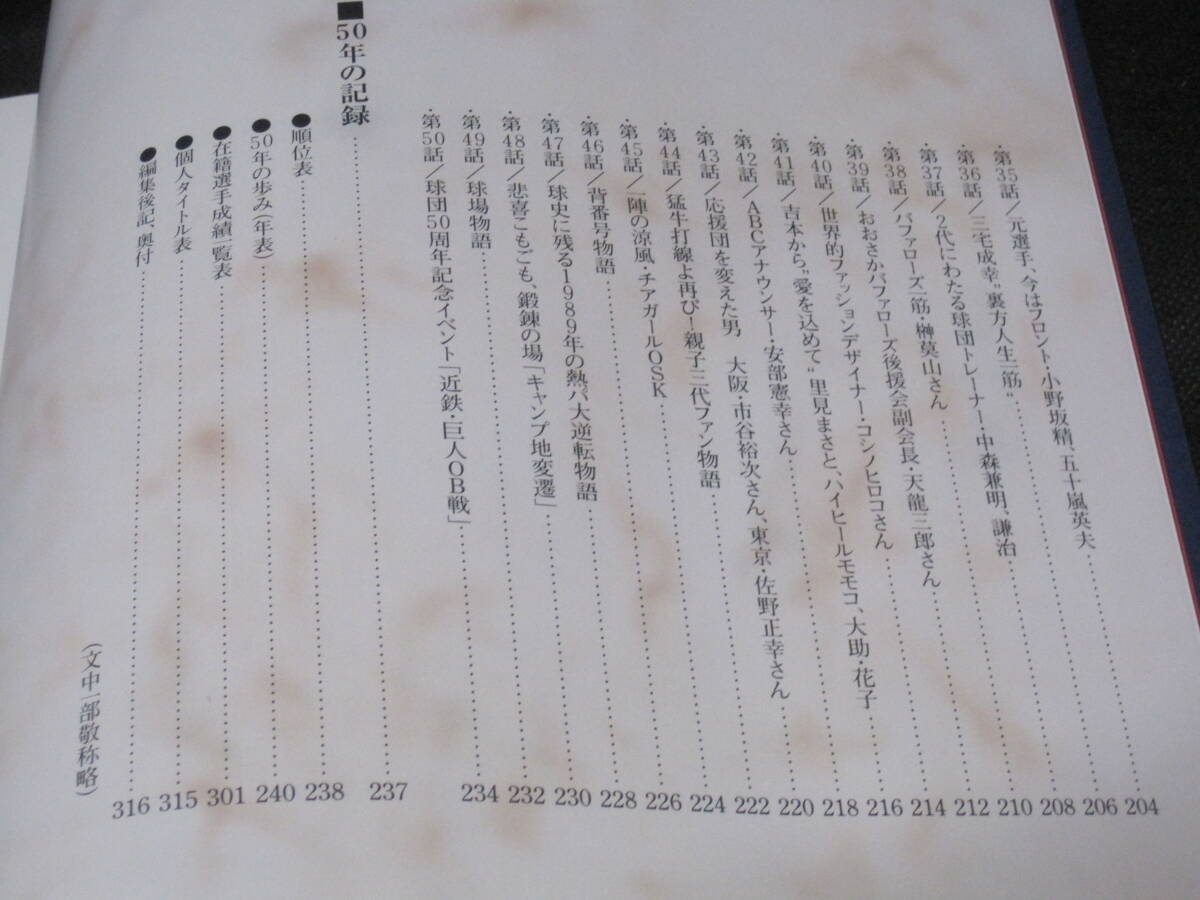 ・第35話／元選手、今はフロント・小野坂精、五十嵐英夫……204
・第36話／三宅成幸“裏方人生一筋”……206
・第37話／2代にわたる球団トレーナー・中森兼明、謙治……208
・第38話／バファローズ一筋・榊莫山さん……210
・第39話／おおさかバファローズ後援会副会長・天龍三郎さん……212
・第40話／世界的ファッションデザイナー・コシノヒロコさん……214
・第41話／吉本から“愛を込めて”里見まさと、ハイヒールモモコ、大助・花子……216
・第42話／ABCアナウンサー・安部憲幸さん……218
・第43話／応援団を変えた男　大阪・市谷裕次さん、東京・佐野正幸さん……220
・第44話／猛牛打線よ再び―親子三代ファン物語……222
・第45話／一陣の涼風・チアガールOSK……224
・第46話／背番号物語……226
・第47話／球史に残る1989年の熱パ大逆転物語……228
・第48話／悲喜こもごも、鍛錬の場「キャンプ地変遷」……230
・第49話／球場物語……232
・第50話／球団50周年記念イベント「近鉄・巨人OB戦」……234
■50年の記録……237
●順位表……238
●50年の歩み（年表）……240
●在籍選手成績一覧表……301
●個人タイトル表……315
●編集後記、奥付……316
（文中一部敬称略）